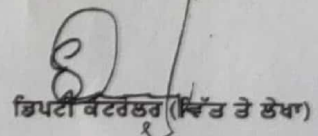 ਡਿਪਟੀ ਕੰਟਰੋਲਰ (ਵਿੱਤ ਤੇ ਲੇਖਾ)